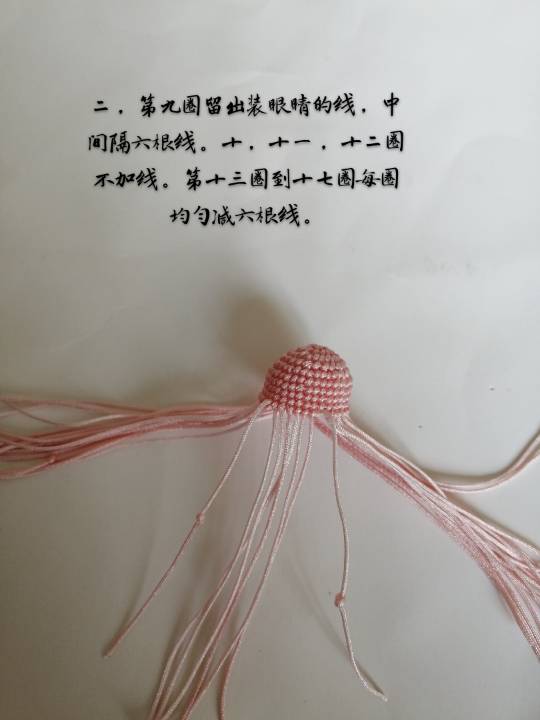 二，第九圈留出装眼睛的线，中
间隔六根线。十，十一，十二圈
不加线。第十三圈到十七圈每圈
均匀减六根线。